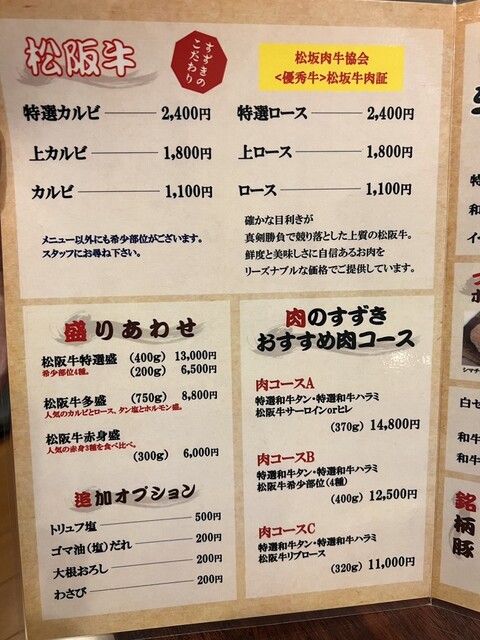 松阪牛
すずきの
こだわり
松坂肉牛協会
<優秀牛>松坂牛肉証
特選カルビ 2,400円
上カルビ 1,800円
カルビ 1,100円
特選ロース 2,400円
上ロース 1,800円
ロース 1,100円
メニュー以外にも希少部位がございます。
スタッフにお尋ね下さい。
確かな目利きが
真剣勝負で競り落とした上質の松阪牛。
鮮度と美味しさに自信あるお肉を
リーズナブルな価格でご提供しています。
盛りあわせ
松阪牛特選盛 (400g) 13,000円
希少部位4種。 (200g) 6,500円
松阪牛多盛 (750g) 8,800円
人気のカルビとロース、タン塩とホルモン盛。
松阪牛赤身盛
人気の赤身3種を食べ比べ。
(300g) 6,000円
追加オプション
トリュフ塩 500円
ゴマ油(塩)だれ 200円
大根おろし 200円
わさび 200円
肉のすずき
おすすめ肉コース
肉コースA
特選和牛タン・特選和牛ハラミ
松阪牛サーロインorヒレ
(370g) 14,800円
肉コースB
特選和牛タン・特選和牛ハラミ
松阪牛希少部位(4種)
(400g) 12,500円
肉コースC
特選和牛タン・特選和牛ハラミ
松阪牛リブロース
(320g) 11,000円
特
和
イ
ホ
シマチ
白セ
和牛
和牛
銘
柄
豚